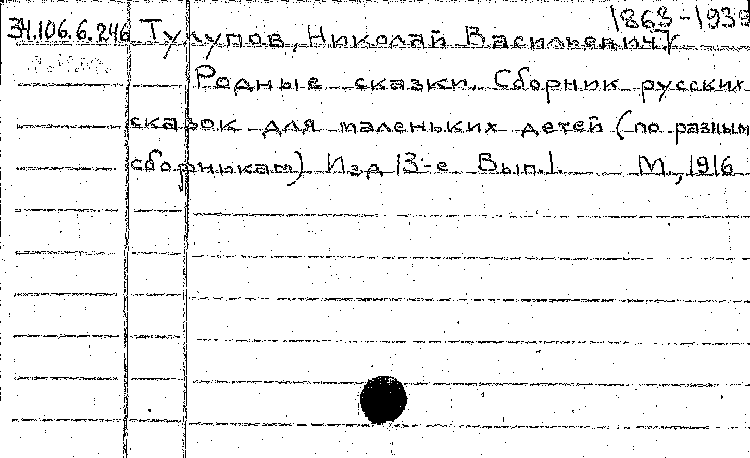 1863-1939
34.106.6.246 Тулупов, Николай Васильевич
Родные сказки. Сборник русских
сказок для маленьких детей (по разным
сборникам) Изд 13-е Вып.1. М., 1916